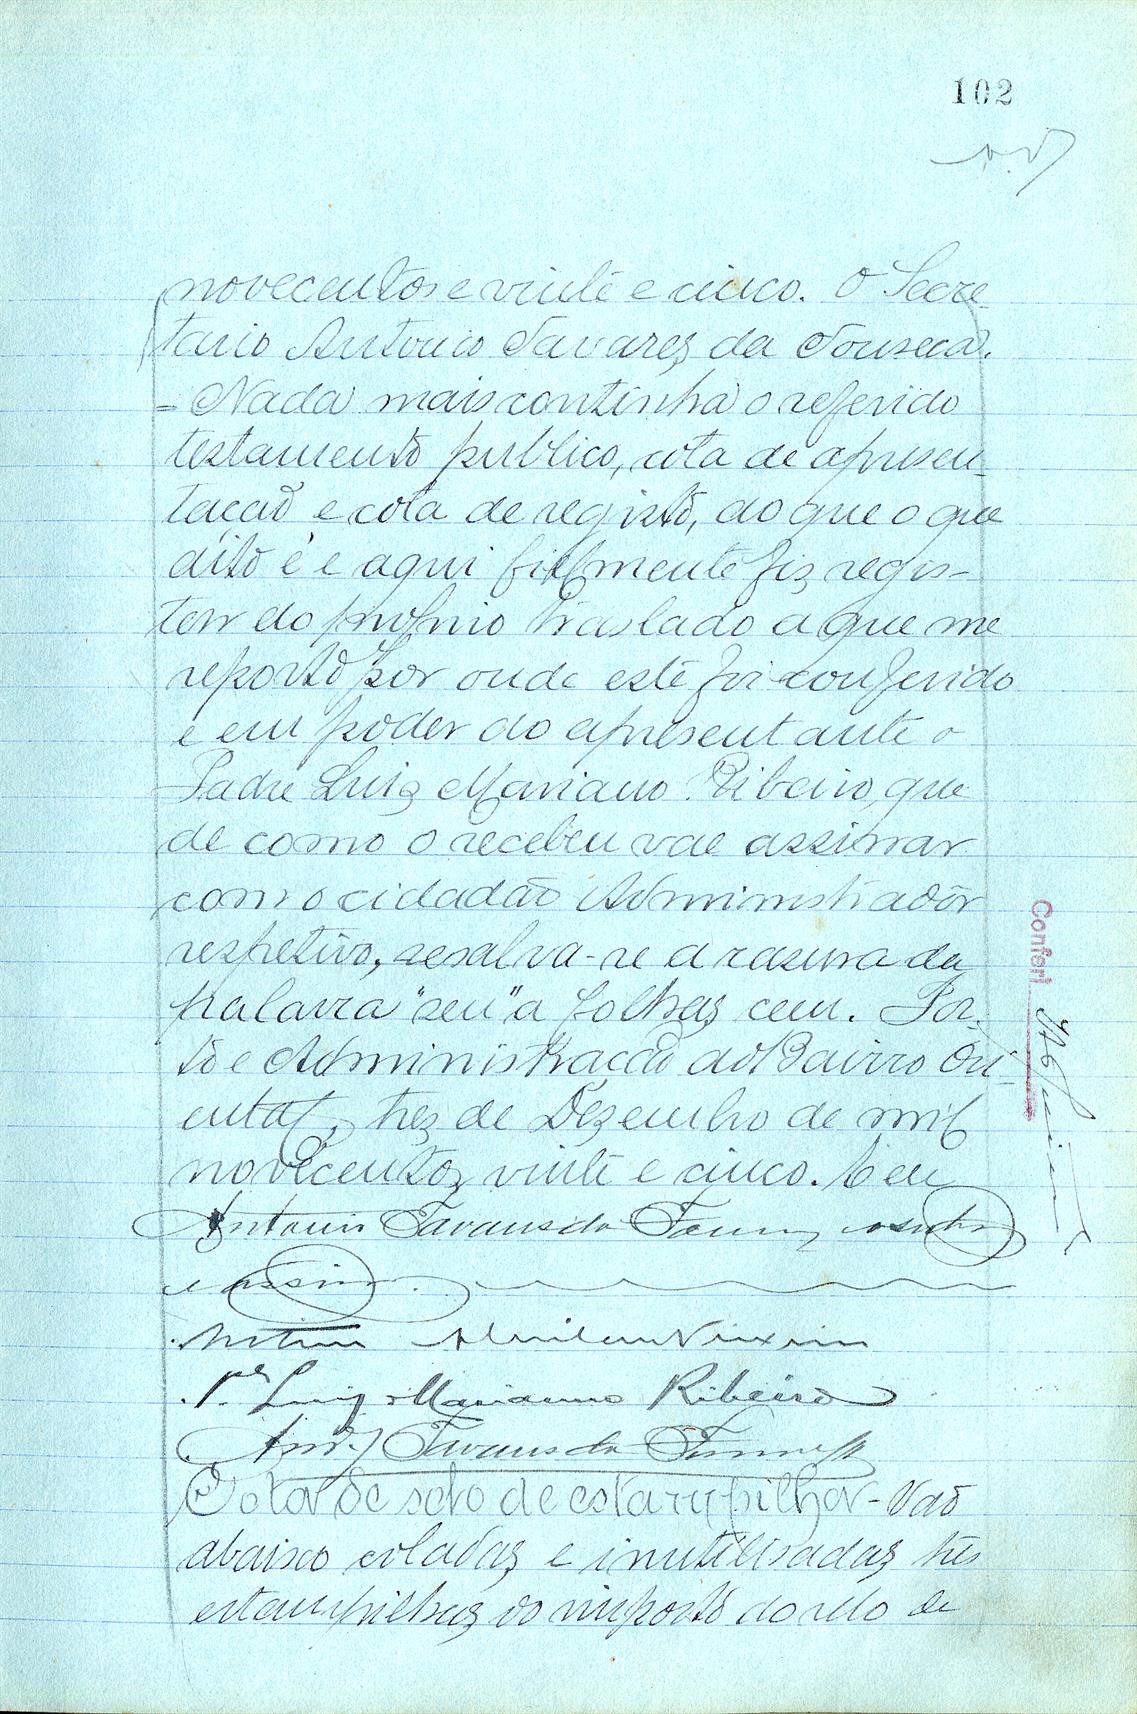 102
novecentos e vinte e cinco. O Secre-
tario Antonio Tavares da Fonseca.
= Nada mais continha o referido
testamento publico, cota de apresen-
tação e cota de registo, do que o que
dito é e aqui fielmente fiz regis-
tar do proprio traslado a que me
reporto por onde este foi conferido
e em poder do apresentante o
Padre Luiz Mariano Ribeiro, que
de como o recebeu vae assinar
com o cidadão Administrador
respetivo, resalva-se a rasura da
palavra "seu" a folhas cem. Por-
to e Administração do Bairro Ori-
ental, trez de Dezembro de mil
novecentos vinte e cinco. E eu
Antonio Tavares da Fonseca
e assino.
Conferi
P.e Luiz Mariano Ribeiro
Anto. Tavares da Fonseca
Cota de selo de estampilha - Vão
abaixo coladas e inutilisadas três
estampilhas do imposto do selo de